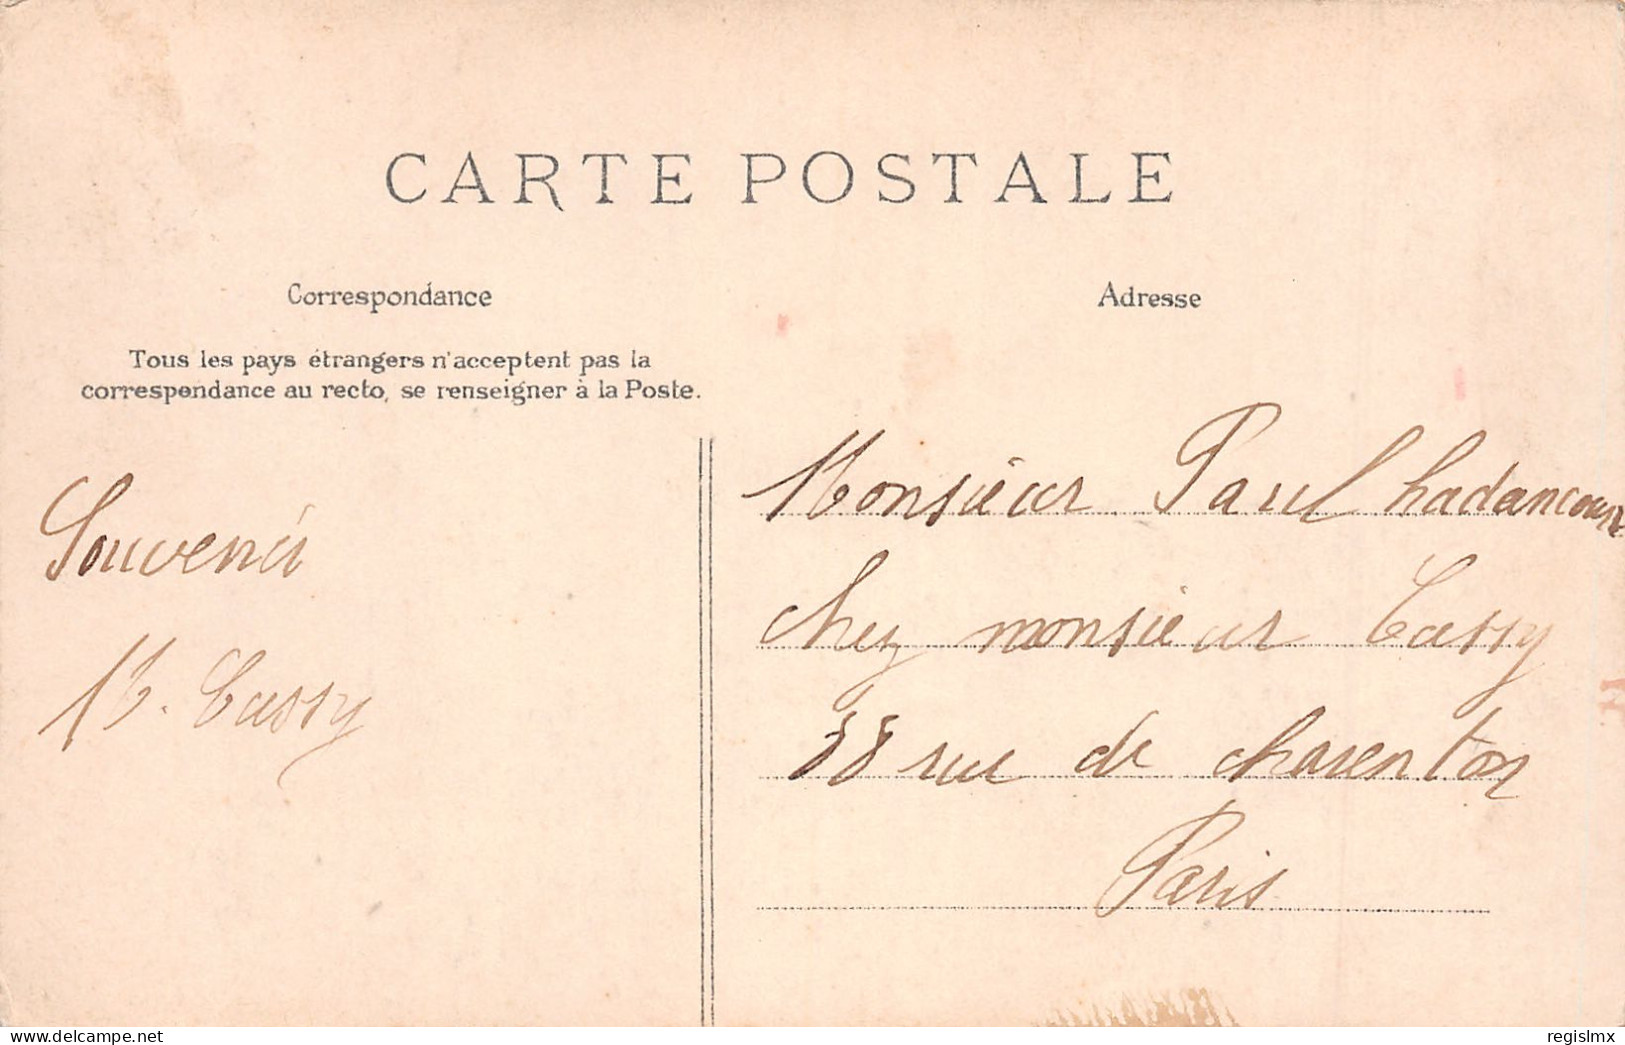 CARTE POSTALE
Correspondance
Tous les pays étrangers n'acceptent pas la
correspondance au recto, se renseigner à la Poste.
Souvenir
M. Cassy
Adresse
Monsieur Paul hadancour
chez monsieur Cassy
38 rue de charenton
Paris
delcampe.net
regislmx